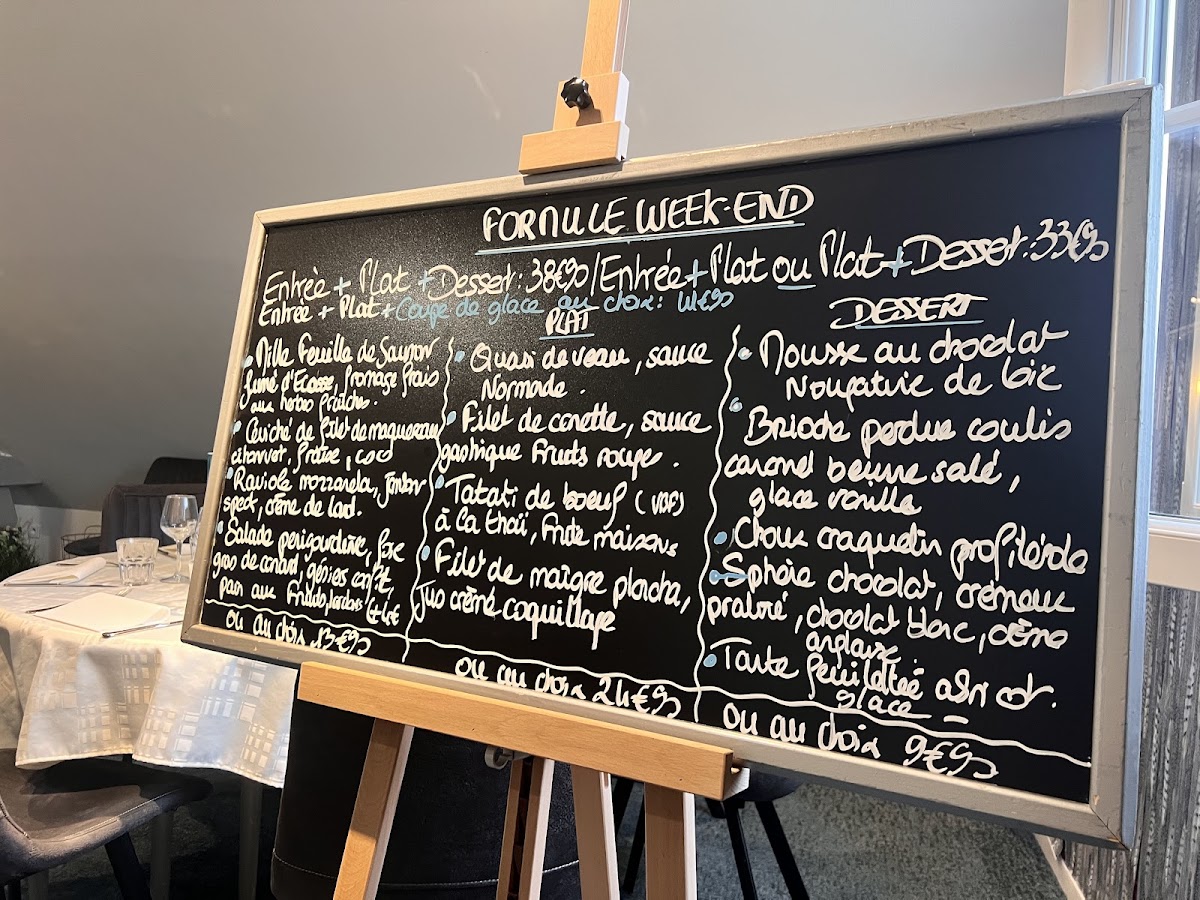 FORMULE WEEK-END
Entrée + Plat + Dessert : 38€90 / Entrée + Plat ou Plat + Dessert : 33€90
Entrée + Plat + Coupe de glace au choix : 41€90
Mille feuille de Saumon
fumé d'Ecosse, fromage frais
aux herbes fraîches.
Ceviché de filet de maquereau
citron vert, fraise, coco
Raviole mozzarela, jambon
speck, crème de lard.
Salade périgourdine, foie
gras de canard, gésiers confit,
pain aux fruits, lardons
ou au choix 13€90
PLAT
Quasi de veau, sauce
Normande.
Filet de canette, sauce
gastrique fruits rouges.
Tatati de boeuf (VBF)
à la thaï, frite maisons
Filet de maigre plancha,
jus crème coquillage
ou au choix 24€90
DESSERT
Mousse au chocolat
Nougatine de
Brioche perdue coulis
caramel beurre salé,
glace vanille
Choux craquelin profiterole
Sphère chocolat, crémeux
praliné, chocolat blanc, crème
anglaise.
Tarte feuilletée abricot.
glace
ou au choix 9€90